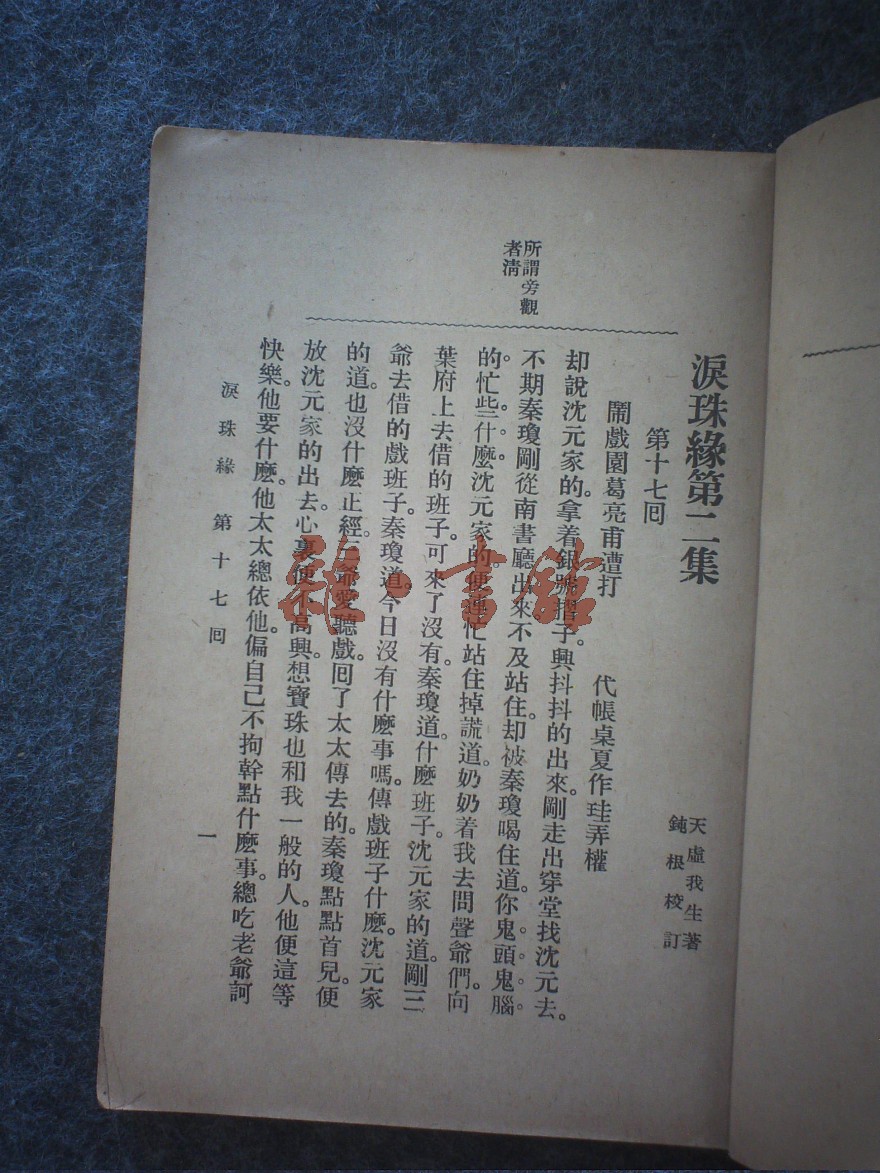 淚珠緣第二集
天虛我生著
鈍根校訂
第十七回
鬧戲園葛亮甫遭打 代帳桌夏作珪弄權
却說沈元家的。拿着銀號摺子。興抖抖的出來。剛走出穿堂找沈元去。
不期秦瓊剛從南書廳出來。不及站住。却被秦瓊喝住道。你鬼頭鬼腦
的。忙些什麽。沈元家的。便連忙站住掉謊道。奶奶着我去問聲爺們。向
葉府上去借的班子。可來了沒有。秦瓊道。什麽班子。沈元家的道。剛三
爺去借的戲班子。秦瓊道。今日沒有什麽事嗎。傳戲班子什麽。沈元家
的道。也沒什麽正經。三爺愛聽戲。回了太太傳去的。秦瓊點點首兒。便
放沈元家的出去。心裏便不高興。想寶珠也和我一般的人。他便這等
快樂。他要什麽。他太太總依他。偏自己不拘幹點什麽事。總吃老爺訶
所謂旁觀
者清
淚珠緣 第十七回
一